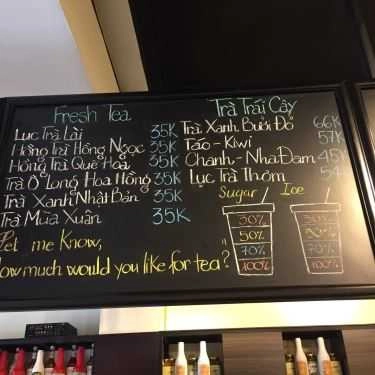 Fresh Tea
Lục Trà Lài 35K
Hồng Trà Hồng Ngọc 35K
Hồng Trà Quế Hoa 35K
Trà Ô Long Hoa Hồng 35K
Trà Xanh Nhật Bản 35K
Trà Mùa Xuân 35K
Trà Trái Cây
Trà Xanh Bưởi Đỏ 66K
Táo - Kiwi 57K
Chanh - Nha Đam 45K
Lục Trà Thơm 54
Sugar Ice
30% 30%
50% 50%
70% 70%
100% 100%
Let me know,
How much would you like for tea?"